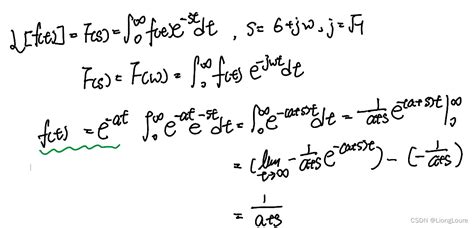 L[f(t)] = F(s) = ∫₀^∞ f(t)e^{-st}dt , s = 6+jw, j=√-1
F(s) = F(w) = ∫₀^∞ f(t) e^{-jwt}dt
f(t) = e^{-at} ∫₀^∞ e^{-at} e^{-st}dt = ∫₀^∞ e^{-(a+s)t}dt = -1/(a+s) e^{-(a+s)t}|₀^∞
= (lim_{t→∞} - 1/(a+s) e^{-(a+s)t}) - (-1/(a+s))
= 1/(a+s)
CSDN @LiongLoure